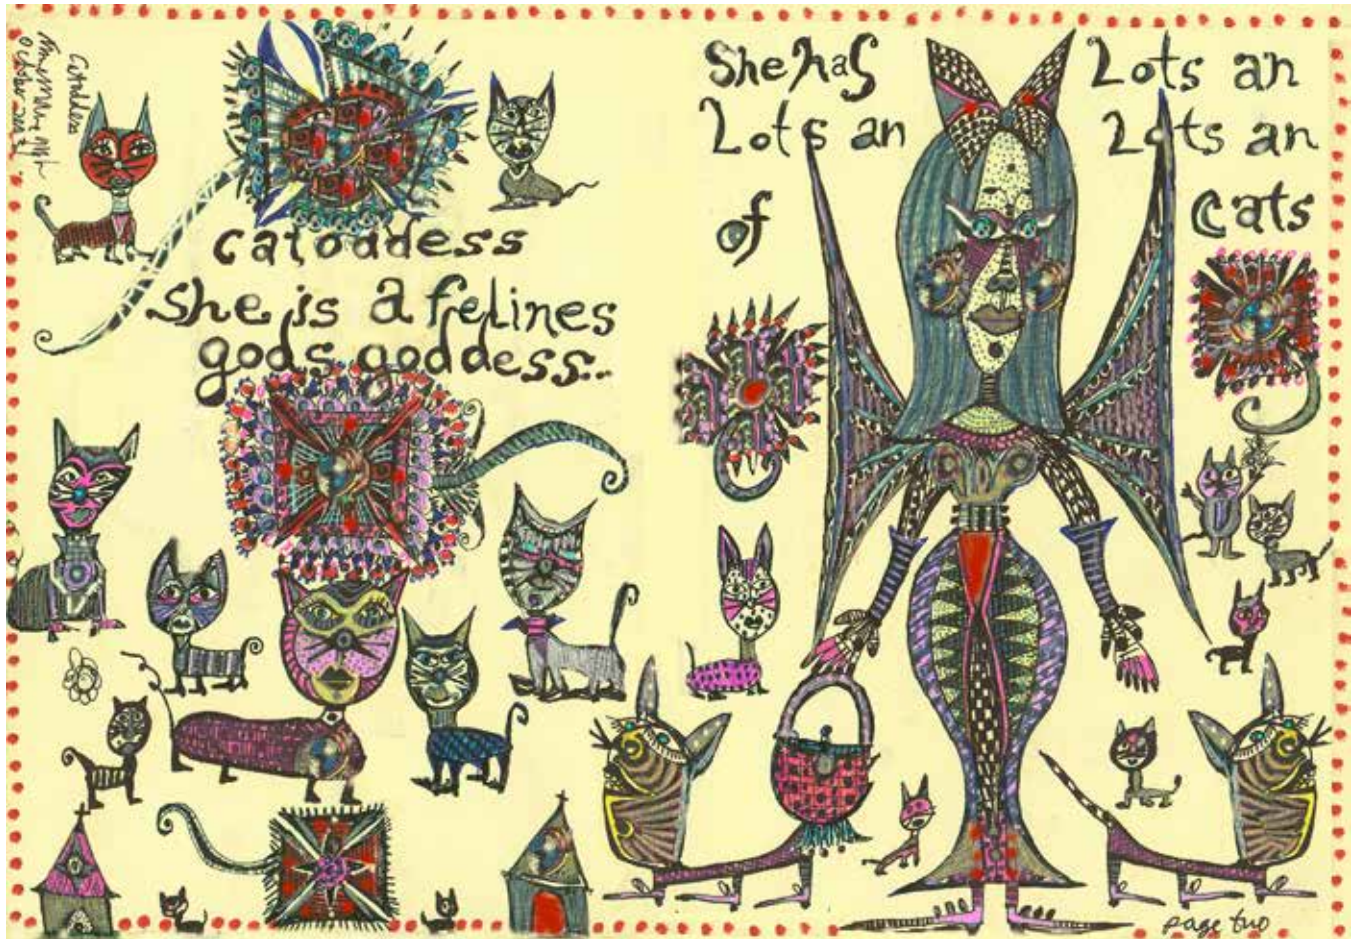 Catoddess
catoddess
she is a felines
gods goddess...
She has Lots an
Lots an Lots an
of cats
page two